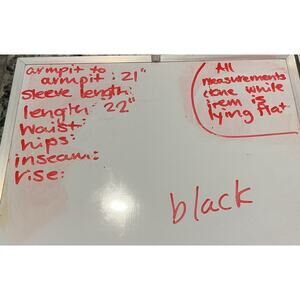 armpit to
armpit: 21"
sleeve length:
length: 22"
waist:
hips:
inseam:
rise:
All
measurements
done while
item is
lying flat
black